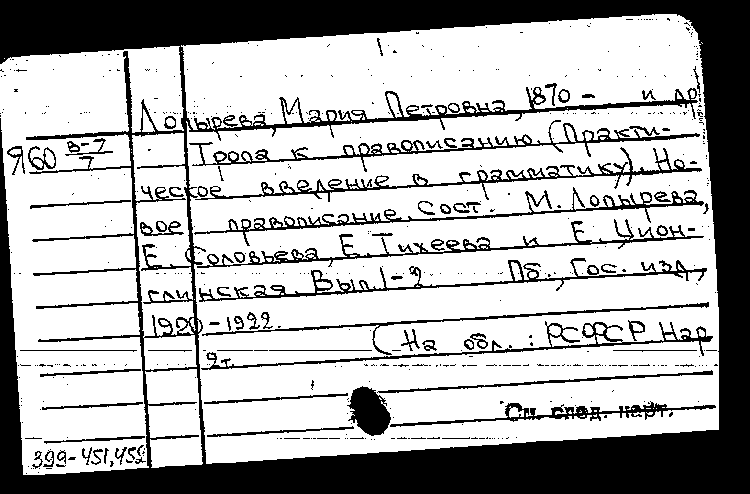 1.
Лопырева, Мария Петровна, 1870 - и др
Я60 в-7/7
Тропа к правописанию. (Практи-
ческое введение в грамматику). Но-
вое правописание. Сост. М. Лопырева,
Е. Соловьева, Е. Тихеева и Е. Цион-
глинская. Вып. 1-2 Пб., Гос. изд,
1920-1922.
2т. (На обл.: РСФСР Нар
См. след. карт.
399-451,452